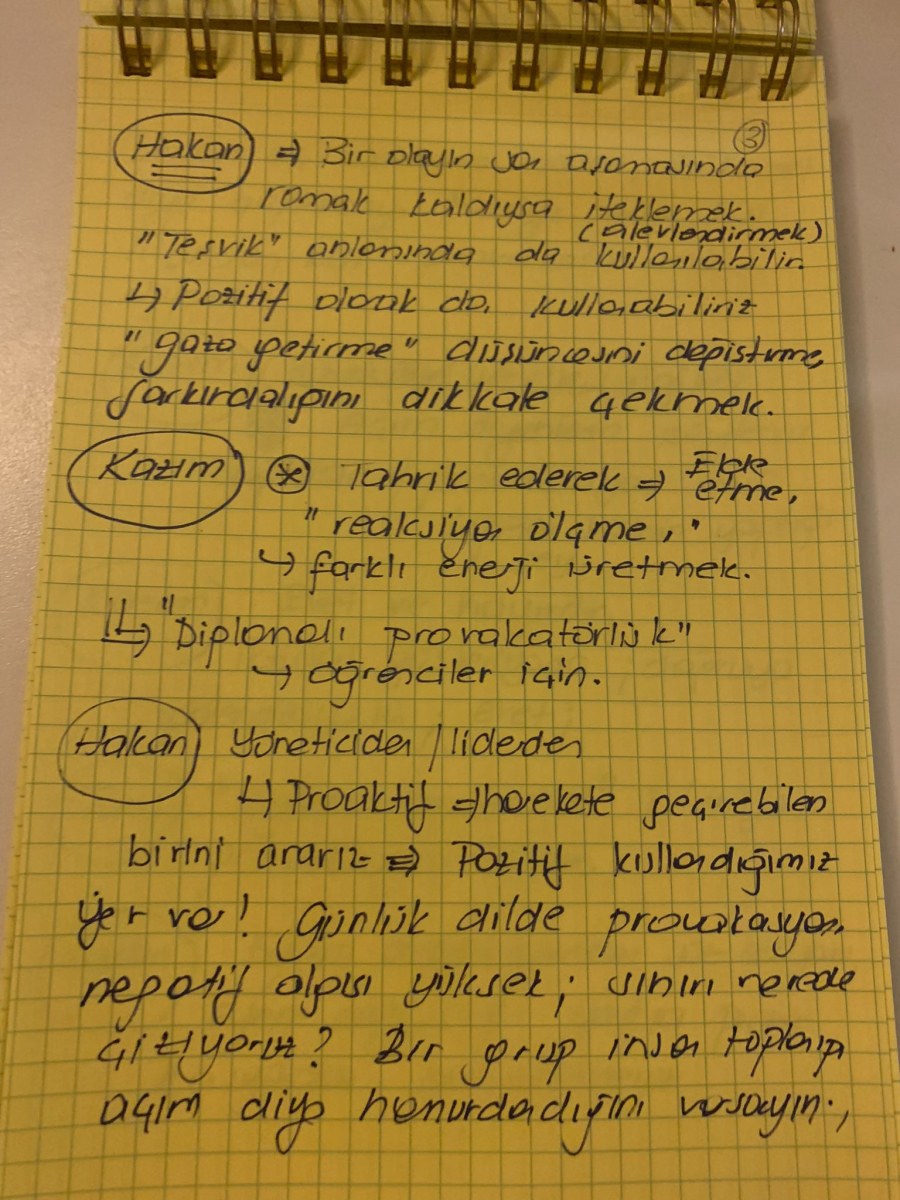 ③
Hakan ⇒ Bir olayın son aşamasında
ramak kaldıysa iteklemek.
(alevlendirmek)
"Teşvik" anlamında da kullanılabilir.
↳ Pozitif olarak da kullanabiliriz
"gaza getirme" düşüncesini değiştirme,
farkındalığını dikkate çekmek.
Kazım * Tahrik ederek ⇒ Elde
etme,
"reaksiyon ölçme,"
↳ farklı enerji üretmek.
↳ "Diplomalı provakatörlük"
↳ öğrenciler için.
Hakan Yöneticiden / liderden
↳ Proaktif ⇒ harekete geçirebilen
birini ararız ⇒ Pozitif kullandığımız
yer var! Günlük dilde provokasyon
negatif algısı yüksek; sınırı nerede
çiziyoruz? Bir grup insan toplanıp
açım diye homurdadığını varsayın.,